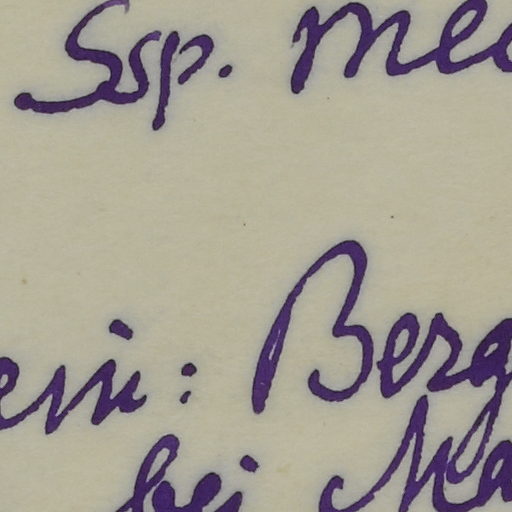 Ssp. me
ein: Berg
bei Ma